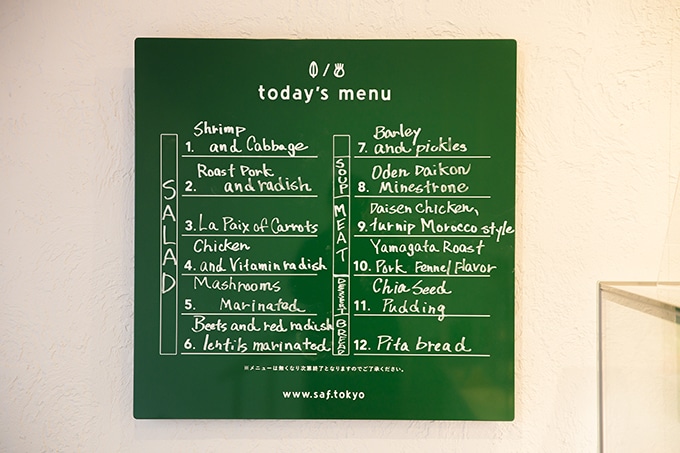 today's menu
SALAD
Shrimp
1. and Cabbage
Roast Pork
2. and radish
3. La Paix of Carrots
Chicken
4. and Vitamin radish
Mashrooms
5. Marinated
Beets and red radish
6. lentils marinated
SOUP
Barley
7. and pickles
Oden Daikon
8. Minestrone
MEAT
Daisen Chicken,
9. turnip Morocco style
Yamagata Roast
10. Pork Fennel Flavor
DESSERT
Chia Seed
11. Pudding
BREAD
12. Pita bread
※メニューは無くなり次第終了となりますのでご了承ください。
www.saf.tokyo